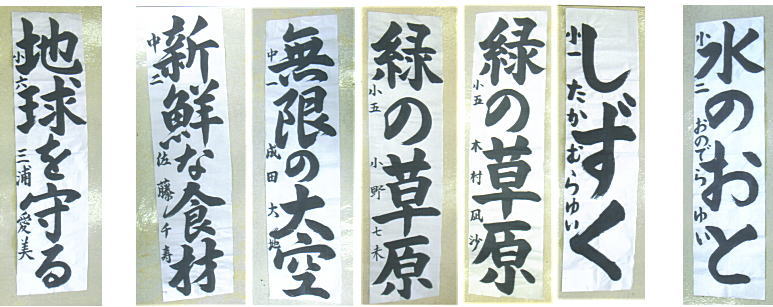 水のおと
小二 おのでらゆい
しずく
小一 たかむらゆい
緑の草原
小五 木村凪沙
緑の草原
小五 小野七末
無限の大空
中一 成田大地
新鮮な食材
中二 佐藤千寿
地球を守る
小六 三浦愛美